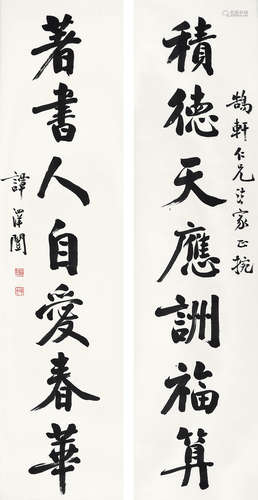 鵠軒仁兄法家正捥
積德天應詶福算
著書人自愛春華
譚澤闓